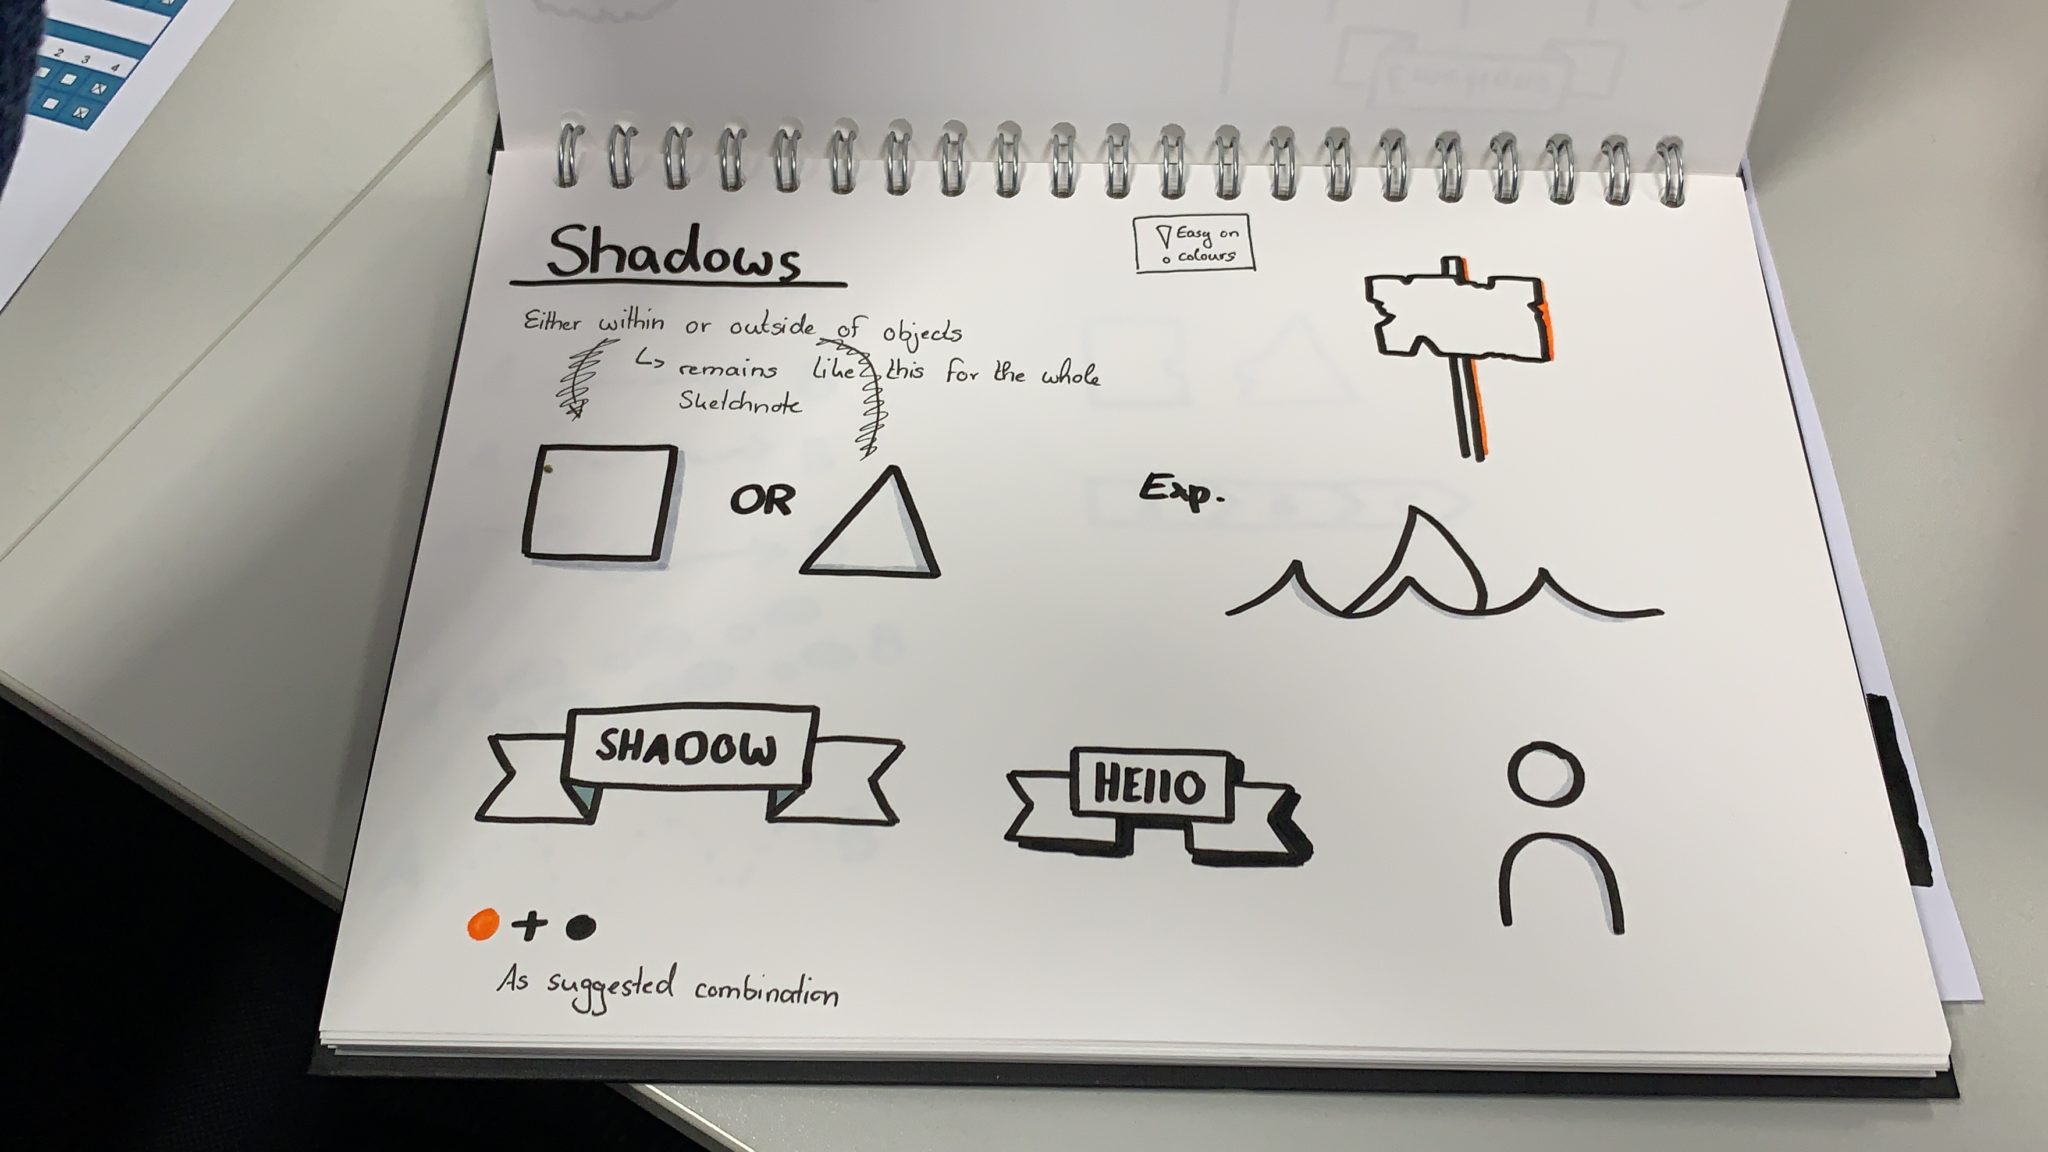 Shadows
Easy on
colours
Either within or outside of objects
remains like this for the whole
Sketchnote
OR
Exp.
SHADOW
HEllO
+
As suggested combination
2 3 4